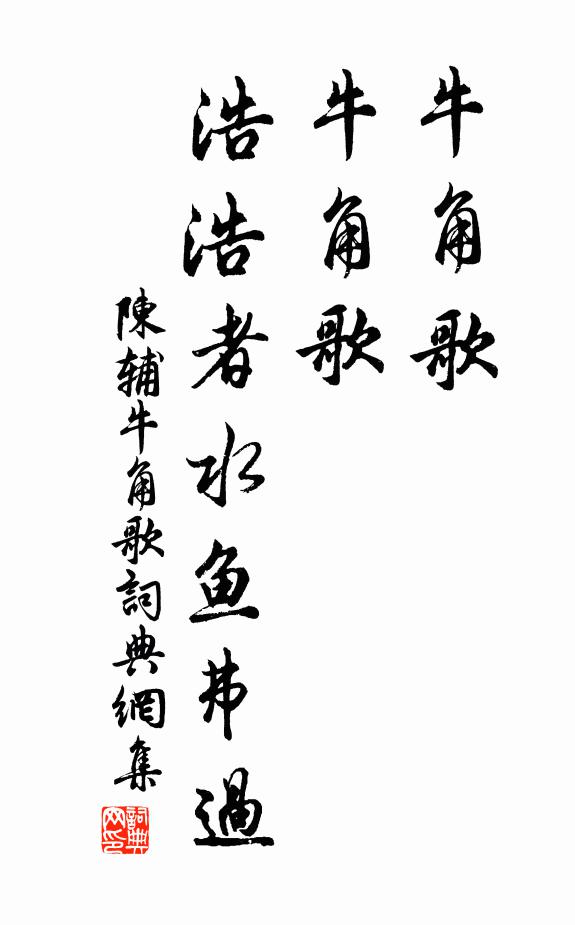 牛角歌
牛角歌
浩浩者水鱼弗過
陳辅牛角歌詞典網集
詞典
网印